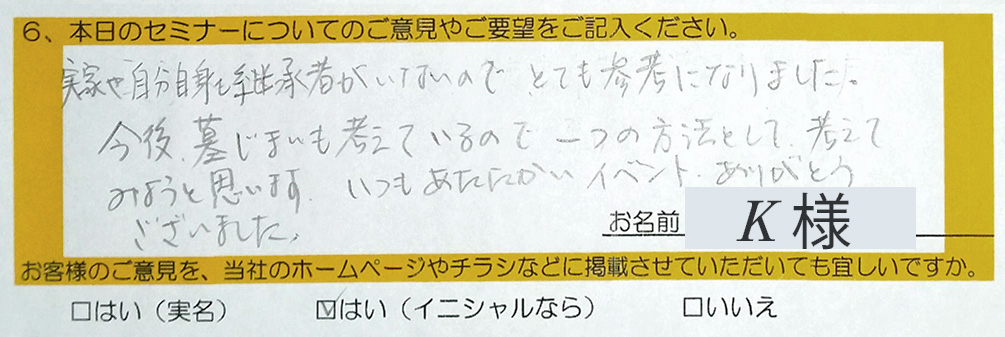 6、本日のセミナーについてのご意見やご要望をご記入ください。
実家や自分自身も継承者がいないので とても参考になりました。
今後、墓じまいも考えているので 一つの方法として、考えて
みようと思います。 いつもあたたかいイベント、ありがとう
ございました。
お名前 K 様
お客様のご意見を、当社のホームページやチラシなどに掲載させていただいても宜しいですか。
□はい（実名） ☑はい（イニシャルなら） □いいえ